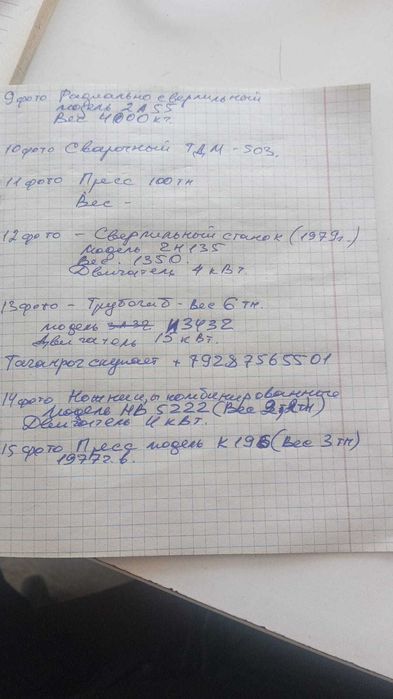 9 фото Радиально сверлильный
модель 2А55
Вес 4000 кг.
10 фото Сварочный ТДМ-503.
11 фото Пресс 100тн
Вес -
12 фото - Сверлильный станок (1979г.)
модель 2Н135
Вес. 1350.
Двигатель 4 кВт.
13 фото - Трубогиб - Вес 6 тн.
модель И3432
Двигатель 15 кВт.
Таганрог скупает +79287565501
14 фото Ножницы комбинированные
модель НВ 5222 (Вес тн)
Двигатель 4 кВт.
15 фото Пресс модель К196 (Вес 3 тн)
1977г.в.